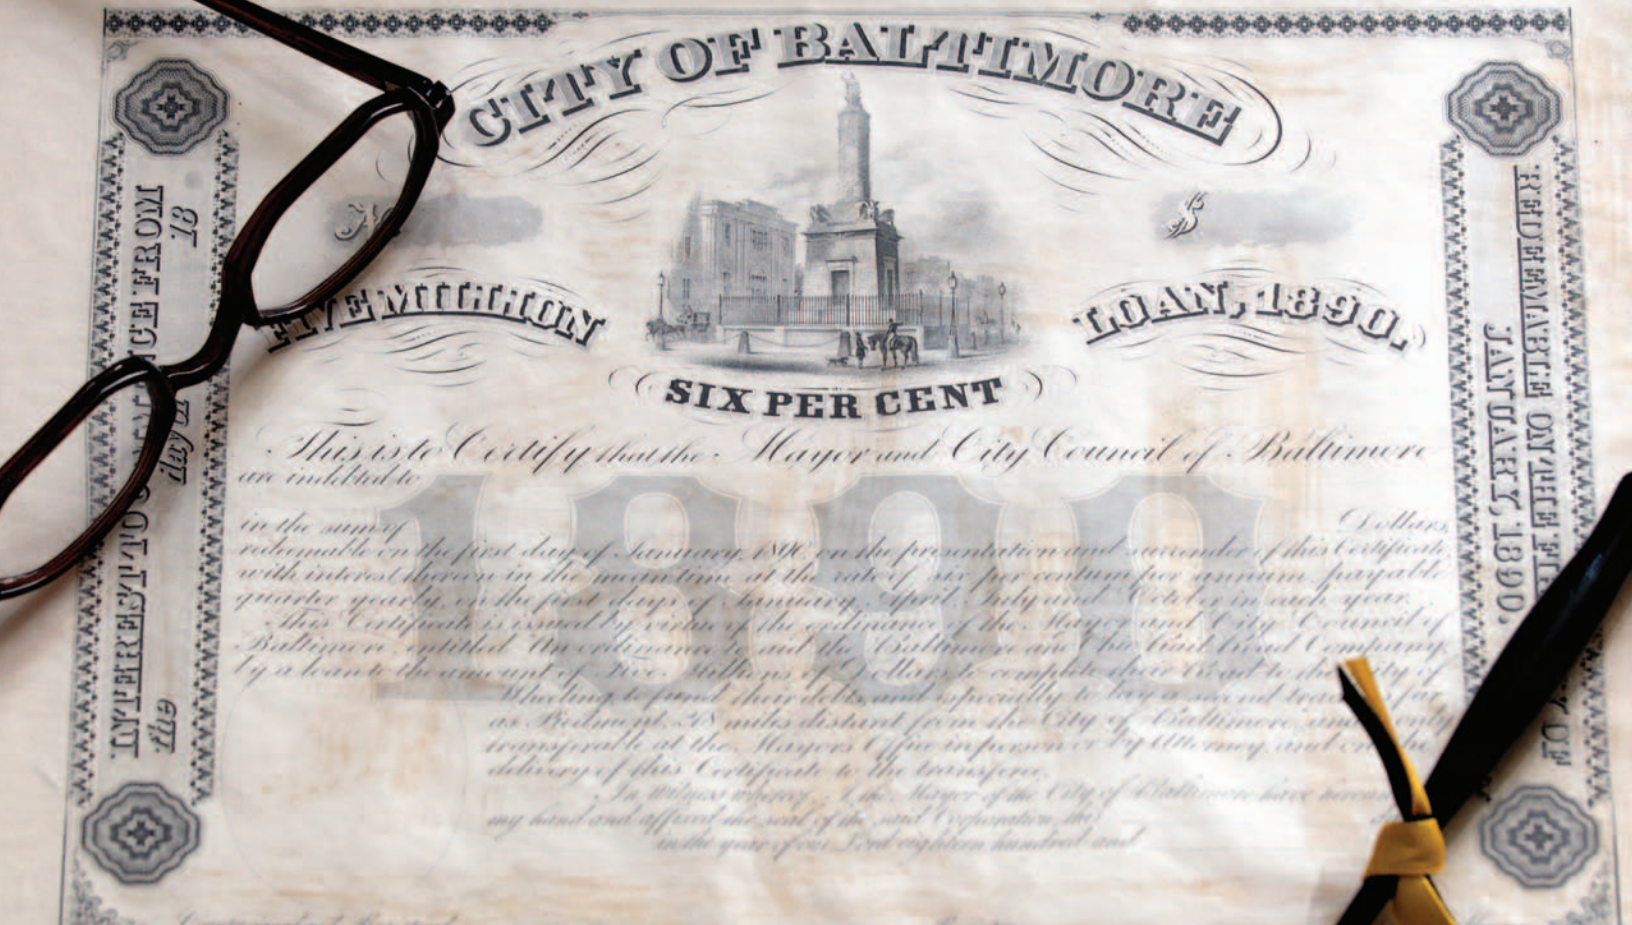 CITY OF BALTIMORE
No
$
FIVE MILLION
LOAN, 1890.
SIX PER CENT
This is to Certify that the Mayor and City Council of Baltimore
are indebted to
in the sum of
Dollars,
redeemable on the first day of January, 1890, on the presentation and surrender of this Certificate
with interest thereon in the mean time at the rate of six per centum per annum payable
quarter yearly, on the first days of January, April, July and October in each year.
This Certificate is issued by virtue of the ordinance of the Mayor and City Council of
Baltimore, entitled An ordinance to aid the Baltimore and Ohio Rail Road Company
by a loan to the amount of Five Millions of Dollars to complete their road to the city of
Wheeling to fund their debt and specially to lay a second track so far
as Piedmont, 208 miles distant from the City of Baltimore and only
transferable at the Mayors Office in person or by Attorney, and on the
delivery of this Certificate to the transferee.
In Witness whereof I the Mayor of the City of Baltimore have hereunto
my hand and affixed the seal of the said Corporation, this
in the year of our Lord eighteen hundred and
1890
INTEREST TO COMMENCE FROM
the day of 18
REDEEMABLE ON THE FIRST DAY OF
JANUARY, 1890.